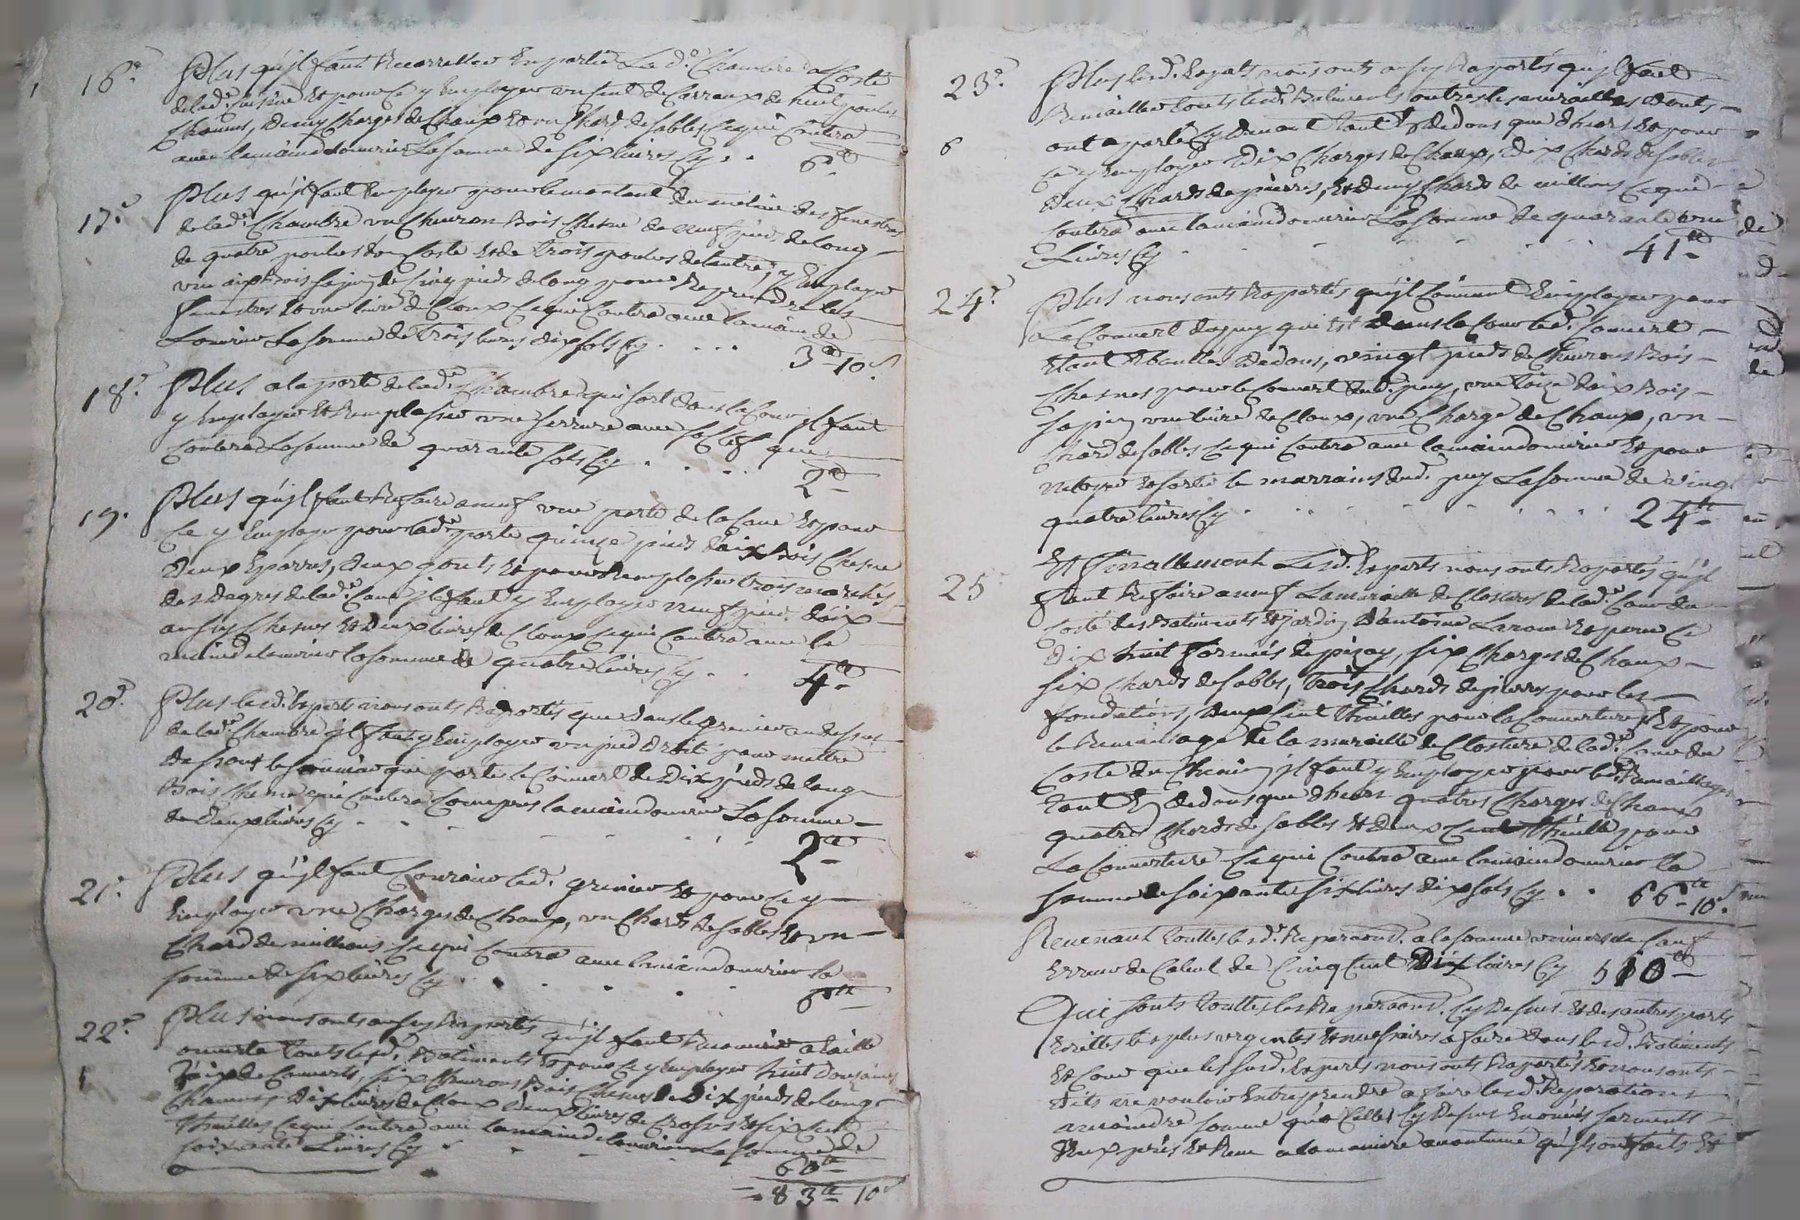 16.e Plus qu'jl faut Recarreller En partie La d.o Chambre a Costé
de lad.e cuisine Et pour ce y Employer un cent de Carraux de huit pouces
Chacuns, demy Charges de Chaux Et un Chard de sables Ce qui Coutera
avec la maind'ouvrier La somme de six livres Cy . . 6tt
17.e Plus qu'jl faut Employer pour le montant du
de lad.e Chambre un Chevron Bois Chesne de neuf pieds de Long
de quatre pouces d'un Coste Et de Trois pouces de L'autre, y Employer
un aix Bois sapin de Cinq pieds de long pour Reprendre les
fenestres Et une livre de Cloux Ce qui Coutera avec la main de
Louvrier La somme de Trois livres dix sols Cy . . . 3tt 10s
18.e Plus a la porte de lad.e Chambre qui sort dans la Cour jl faut
y Employer Et Remplasser une serrure avec sa Clef que
Coutera La somme de quarante sols Cy . . . . 2tt
19. Plus qu'jl faut Refaire a neuf une porte de la Cave Et pour
Ce y Employer pour lad.e porte quinze pieds d'aix Bois Chesne
deux Eparres, deux gonts Et pour Remplasser trois marches
des degres de lad.e Cave jl faut y Employer neuf pieds d'aix
aussy Chesnes Et deux livres de Cloux Ce qui Coutera avec la
main de louvrier la somme de quatre livres Cy . . 4tt
20.e Plus lesd. Experts nous onts Raportés que dans le grenier au dessus
de lad.e Chambre jl faut y Employer un pied droit pour mettre
de sous le sommier qui porte le Couvert de Dix pieds de long
Bois Chesne qui Coutera Compris la maind'ouvrier La somme
de Deux livres Cy . . . 2tt
21.e Plus qu'jl faut Couroier led. grenier Et pour Ce y
Employer une Charges de Chaux, un Chard de sables Et un
Chard de millions Ce qui Coutera avec la maind'ouvrier la
somme de six livres Cy . . . . 6tt
22.e Plus nous onts aussy Raportés qu'jl faut Remanier a taille
ouverte touts lesd. Batiments Et pour Ce y Employer huit douzaines
d'aix de Couverts, six Chevrons Bois Chesne de Dix pieds de long
Chacuns, Dix livres de Cloux deux livres de Crosses Et six Cent
Thuilles Ce qui Coutera avec la main de louvrier La somme de
soixante Livres Cy . . . . 60tt
83tt 10s
23.e Plus lesd. Experts nous onts aussy Raportés qu'jl faut
Remailler touts lesd. Batiments outres les murailles dont
6 ont aporté Cy devant tant En dedans que dhors Et pour
Ce y Employer Dix Charges de Chaux, Dix Chards de sables
deux Chards de pierres, Et demy Chard de millions Ce qui
Coutera avec la maind'ouvrier La somme de quarante une
Livres Cy . . . . 41tt
24.e Plus nous onts Raportés qu'jl Convient Employer pour
Le Couvert du puy qui Est dans la Cour led. Couvert
Etant Eboullé dedans, vingt pieds de Chevrons Bois
Chesnes pour le Couvert dud. puy, une toize d'aix Bois
sapin, une livre de Cloux, une Charge de Chaux, un
Chard de sables Ce qui Coutera avec la maind'ouvrier Et pour
netoyer Et sortir le marrains dud. puy La somme de vingt
quatre livres Cy . . . . 24tt
25 Et Finallement Lesd. Experts nous onts Raportés qu'jl
faut Refaire a neuf La muraille de Clotures de lad.e Cour du
Costé des Batiments Et jardin d'antoine Et pour Ce
Dix huit formées de pizay, six Charges de Chaux
six Chards de sables, Trois Chards de pierres pour les
fondations, deux Cent Thuilles pour la Couverture, Et pour
le Remaillage de la muraille de Closture de lad.e Cour du
Coste du Chemin jl faut y Employer pour led. Remaillages
tant En dedans que dhors quatres Charges de Chaux
quatre Chards de sables Et deux Cent Thuille pour
La Couverture Ce qui Coutera avec la maind'ouvrier la
somme de soixante six livres dix sols Cy . . 66tt 10s
Revenant touttes lesd. Reparaons. a la somme universelle sauf
Erreur de Calcul de Cinq Cent Dix livres Cy 510tt
Qui sonts touttes les Reparaons. Cy dessus Et des autres parts
Ecrittes les plus urgentes Et necessaires a faire dans lesd. Batiments
Et Cour que les susd. Experts nous onts Raportés Et nous onts
dits ne vouloir Entreprendre a faire lesd. Reparations
a moindre somme qu'a Celles Cy dessus Enoncés serment
d'Eux pris Et Reçu a la maniere accoutumé qu'jls ont faits Et